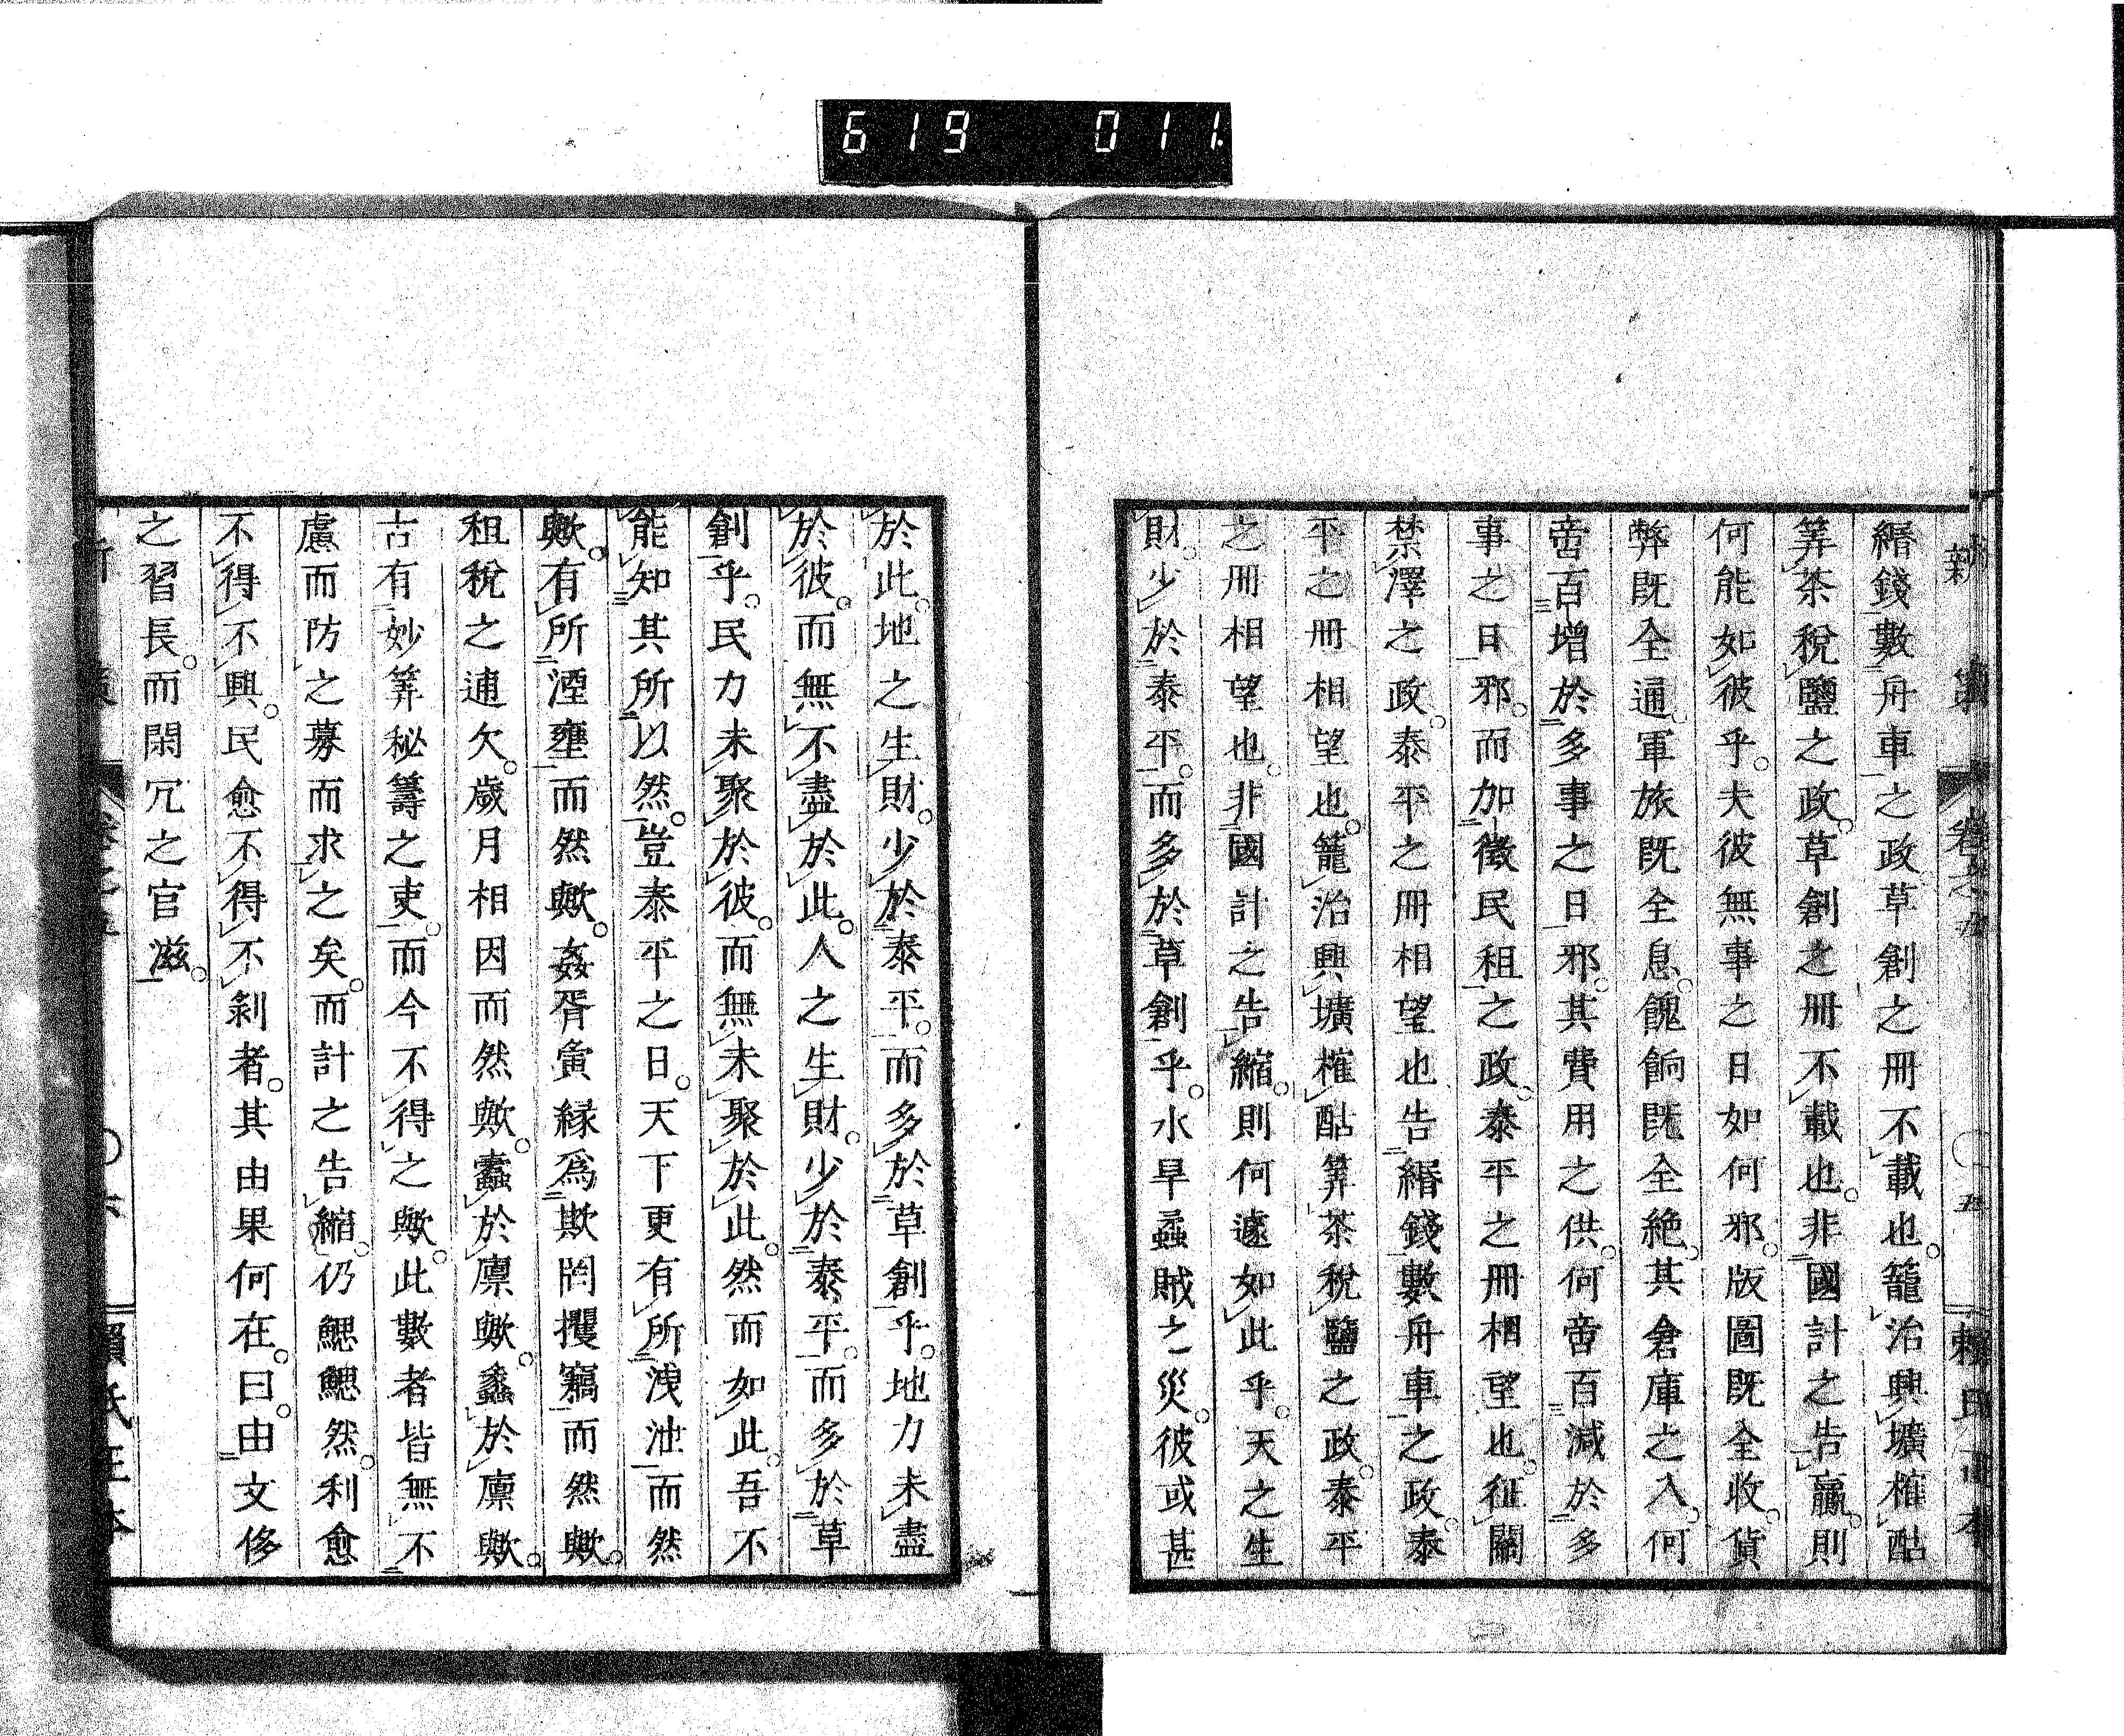 619 011
新策 卷之五 〇五 賴氏正本
緡錢數舟車之政草創之冊不載也。籠治興壙榷酤
筭茶稅鹽之政。草創之冊不載也。非國計之告羸。則
何能如彼乎。夫彼無事之日如何邪。版圖既全收。貨
弊既全通。軍旅既全息。餽餉既全絶。其倉庫之入。何
啻百增於多事之日邪。其費用之供。何啻百減於多
事之日邪。而加徵民租之政。泰平之冊相望也。征關
禁澤之政。泰平之冊相望也告緡錢數舟車之政。泰
平之冊相望也。籠治興壙榷酤筭茶稅鹽之政。泰平
之冊相望也。非國計之告縮。則何遽如此乎。天之生
財。少於泰平。而多於草創乎。水旱蟊賊之災。彼或甚
於此。地之生財。少於泰平。而多於草創乎。地力未盡
於彼。而無不盡於此。人之生財。少於泰平。而多於草
創乎。民力未聚於彼。而無未聚於此。然而如此。吾不
能知其所以然。豈泰平之日。天下更有所洩泄而然
歟。有所湮壅而然歟。姦胥夤緣爲欺罔攫竊而然歟。
租稅之逋欠。歲月相因而然歟。蠹於廩歟。蠡於廩歟。
古有妙筭秘籌之吏。而今不得之歟。此數者皆無不
慮而防之募而求之矣。而計之告縮。仍鰓鰓然。利愈
不得不興。民愈不得不剝者。其由果何在。曰。由文侈
之習長。而閑冗之官滋。